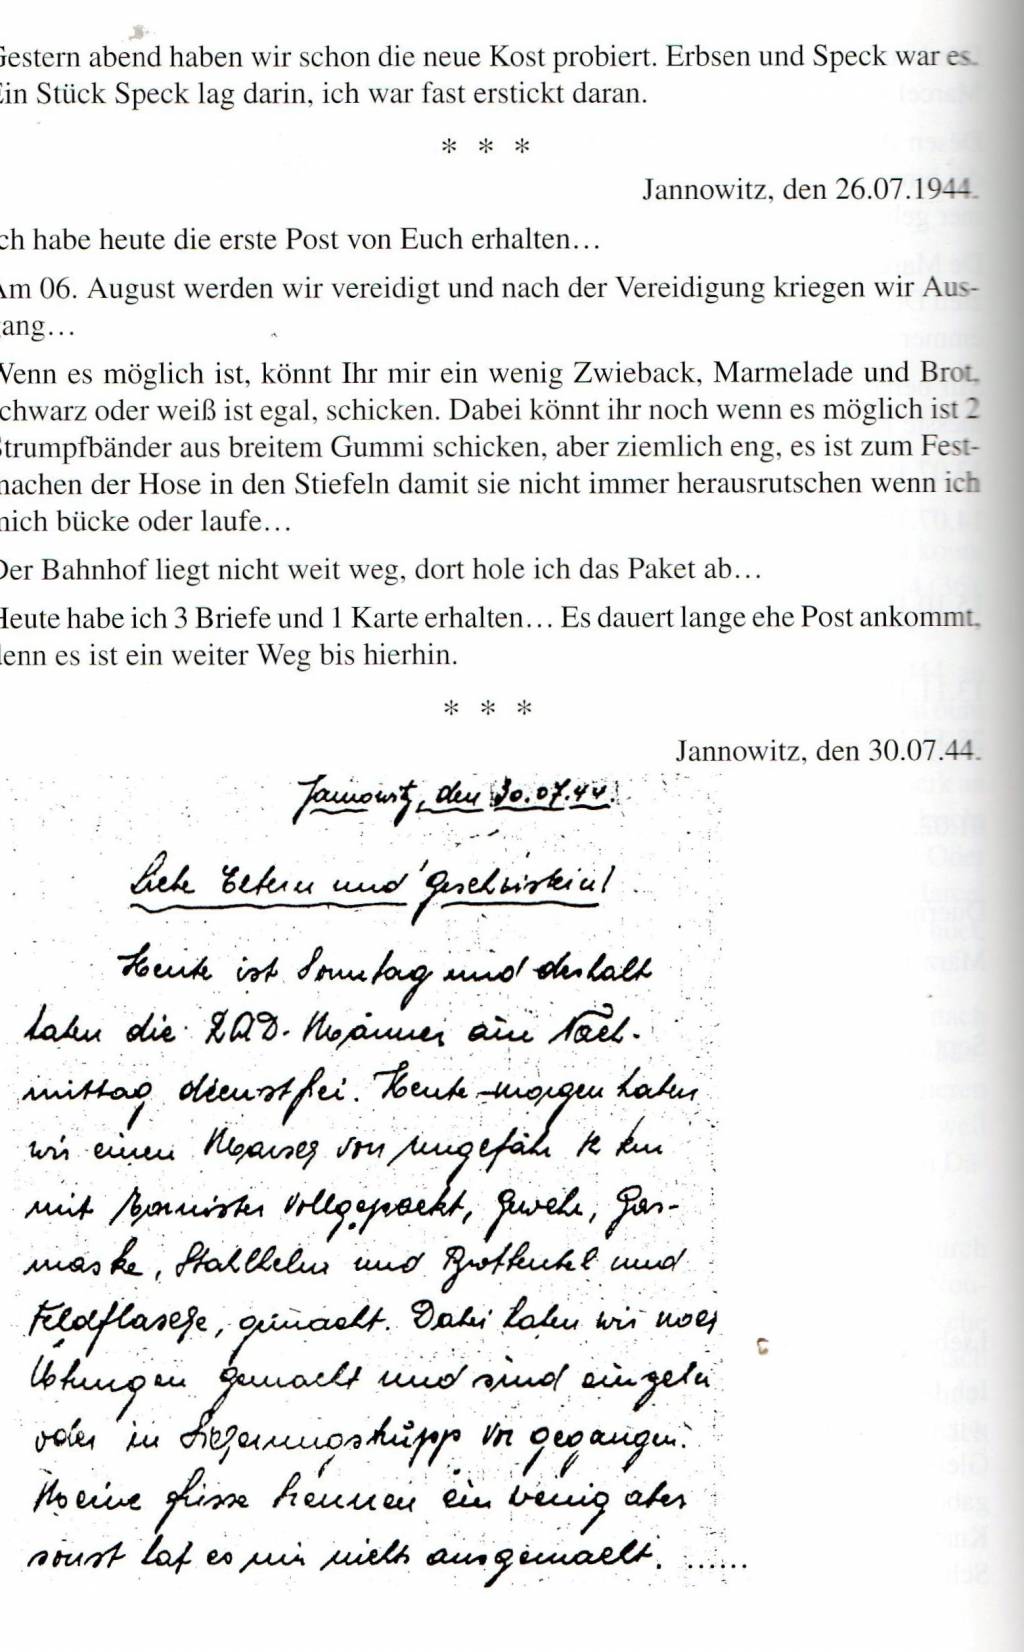 Gestern abend haben wir schon die neue Kost probiert. Erbsen und Speck war es.
Ein Stück Speck lag darin, ich war fast erstickt daran.
* * *
Jannowitz, den 26.07.1944.
ch habe heute die erste Post von Euch erhalten…
Am 06. August werden wir vereidigt und nach der Vereidigung kriegen wir Aus-
gang…
Wenn es möglich ist, könnt Ihr mir ein wenig Zwieback, Marmelade und Brot,
schwarz oder weiß ist egal, schicken. Dabei könnt ihr noch wenn es möglich ist 2
Strumpfbänder aus breitem Gummi schicken, aber ziemlich eng, es ist zum Fest-
machen der Hose in den Stiefeln damit sie nicht immer herausrutschen wenn ich
mich bücke oder laufe…
Der Bahnhof liegt nicht weit weg, dort hole ich das Paket ab…
Heute habe ich 3 Briefe und 1 Karte erhalten… Es dauert lange ehe Post ankommt,
denn es ist ein weiter Weg bis hierhin.
* * *
Jannowitz, den 30.07.44.
Jannowitz, den 30.07.44.
Liebe Eltern und Geschwister!
Heute ist Sonntag und deshalb
haben die RAD-Männer am Nach-
mittag dienstfrei. Heute morgen haben
wir einen Marsch von ungefähr km
mit Tornister vollgepackt, Gewehr, Gas-
maske, Stahlhelm und Brotbeutel und
Feldflasche, gemacht. Dabei haben wir noch
Übungen gemacht und sind einzeln
oder in vor gegangen.
Meine Füsse brennen ein wenig aber
sonst hat es mir nichts ausgemacht. ......